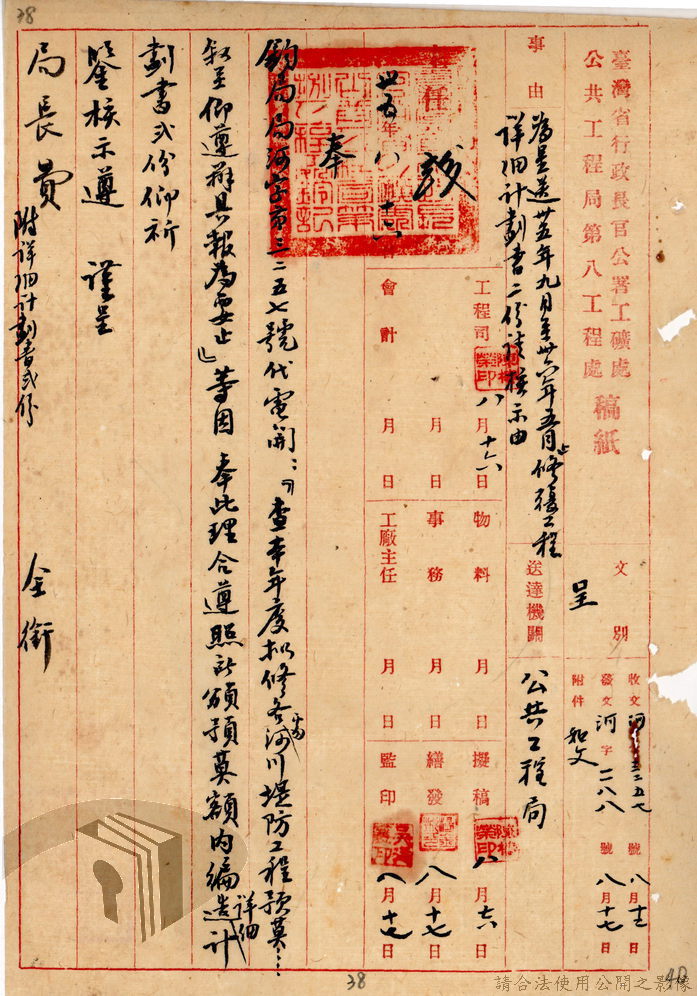 38
臺灣省行政長官公署工礦處
公共工程局第八工程處 稿紙
文別
呈
收文 河 三二五七 號 八月十三日
發文 河字 二八八 號 八月十七日
附件 如文
事由
為呈送卅五年九月至卅六年五月止修復工程
詳細計劃書二份請核示由
送達機關
公共工程局
工程司 八月十六日
物料 月 日
擬稿 八月十六日
月 日
事務 月 日
繕發 八月十七日
會計 月 日
工廠主任 月 日
監印 八月十七日
主任
卅五年八月十六
奉
鈞局局河字第三二五七號代電開：「查本年度擬修各河川堤防工程預算……
敘至仰遵辦具報為要止」等因 奉此理合遵照所頒預算額內編造詳細計
劃書弍份仰祈
鑒核示遵 謹呈
局長費
附詳細計劃書弍份
全銜
38
40
請合法使用公開之影像